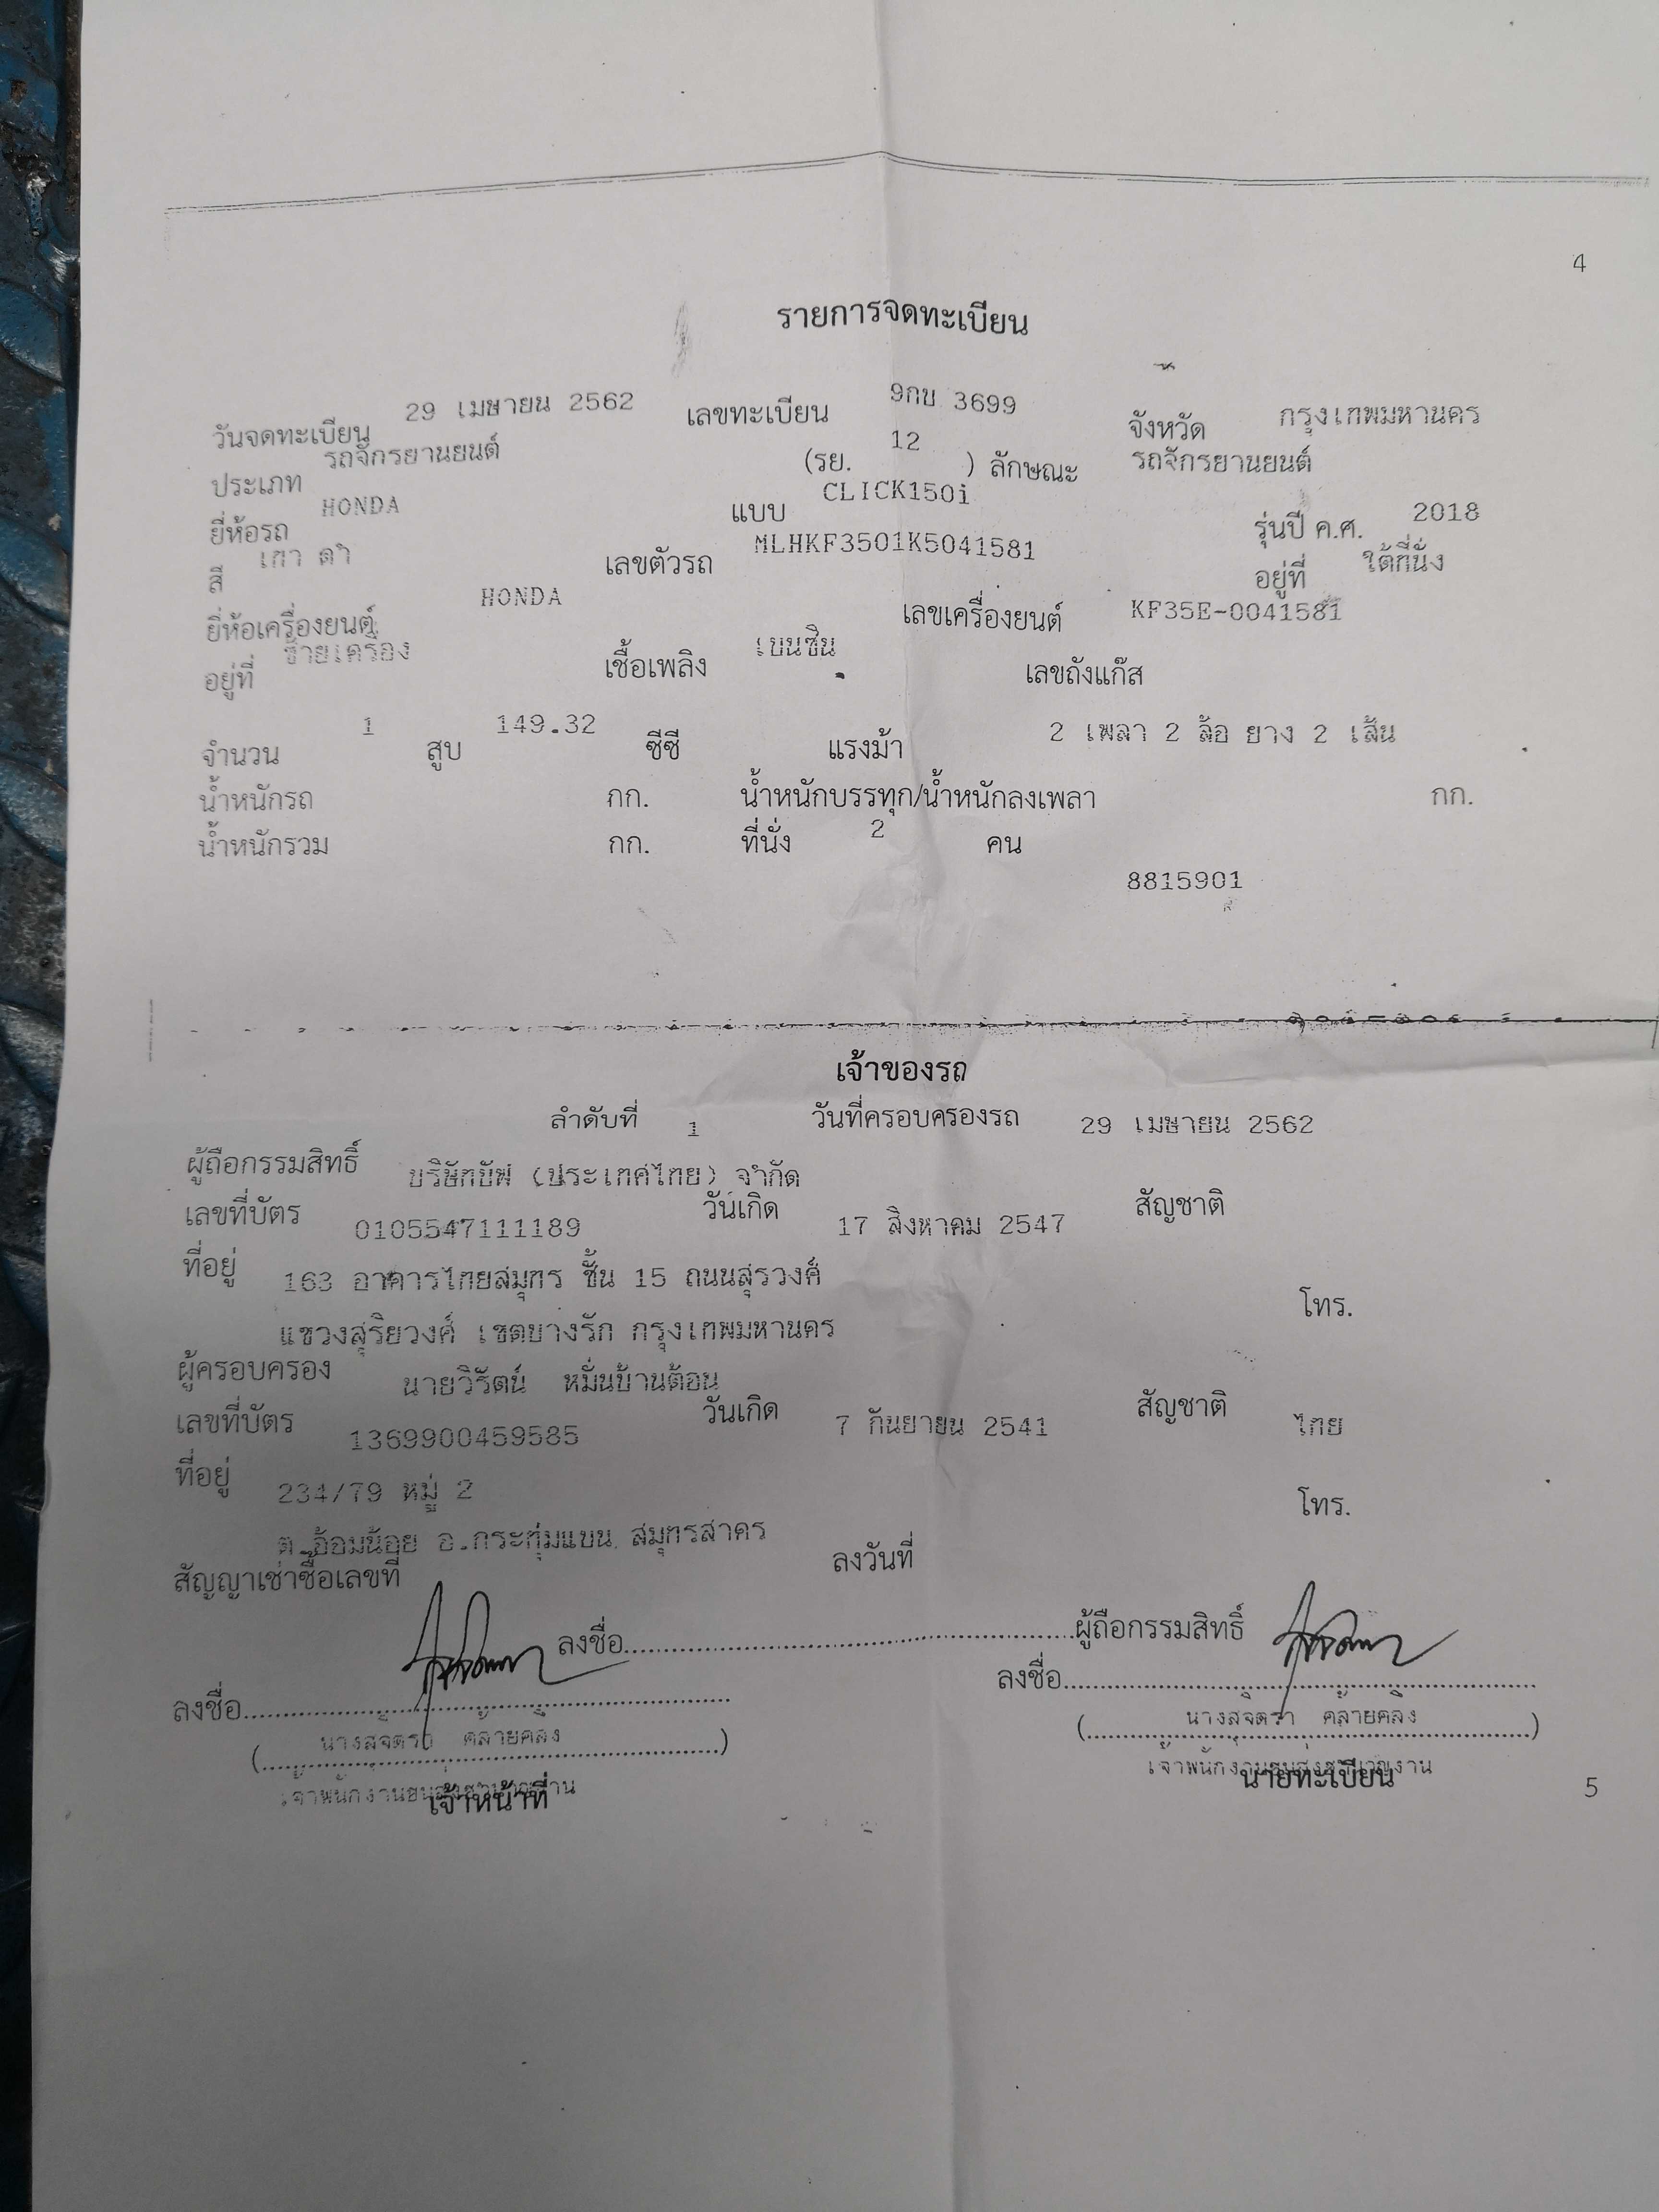 4
รายการจดทะเบียน
วันจดทะเบียน 29 เมษายน 2562 เลขทะเบียน 9กข 3699 จังหวัด กรุงเทพมหานคร
ประเภท รถจักรยานยนต์ (รย. 12 ) ลักษณะ รถจักรยานยนต์
ยี่ห้อรถ HONDA แบบ CLICK150i รุ่นปี ค.ศ. 2018
สี เทา ดำ เลขตัวรถ MLHKF3501K5041581 อยู่ที่ ใต้ที่นั่ง
ยี่ห้อเครื่องยนต์ HONDA เลขเครื่องยนต์ KF35E-0041581
อยู่ที่ ซ้ายเครื่อง เชื้อเพลิง เบนซิน เลขถังแก๊ส
จำนวน 1 สูบ 149.32 ซีซี แรงม้า 2 เพลา 2 ล้อ ยาง 2 เส้น
น้ำหนักรถ กก. น้ำหนักบรรทุก/น้ำหนักลงเพลา กก.
น้ำหนักรวม กก. ที่นั่ง 2 คน
8815901
เจ้าของรถ
ลำดับที่ 1 วันที่ครอบครองรถ 29 เมษายน 2562
ผู้ถือกรรมสิทธิ์ บริษัทบัฟ (ประเทศไทย) จำกัด
เลขที่บัตร 0105547111189 วันเกิด 17 สิงหาคม 2547 สัญชาติ
ที่อยู่ 163 อาคารไทยสมุทร ชั้น 15 ถนนสุรวงศ์
แขวงสุริยวงศ์ เขตบางรัก กรุงเทพมหานคร โทร.
ผู้ครอบครอง นายวิรัตน์ หมั่นบ้านต้อน
เลขที่บัตร 1369900459585 วันเกิด 7 กันยายน 2541 สัญชาติ ไทย
ที่อยู่ 234/79 หมู่ 2
ต.อ้อมน้อย อ.กระทุ่มแบน สมุทรสาคร โทร.
สัญญาเช่าซื้อเลขที่ ลงวันที่
ลงชื่อ ผู้ถือกรรมสิทธิ์
ลงชื่อ ลงชื่อ
( นางสุจิตรา คล้ายคลึง ) ( นางสุจิตรา คล้ายคลึง )
เจ้าพนักงานขนส่งชำนาญงาน เจ้าพนักงานขนส่งชำนาญงาน
เจ้าหน้าที่ นายทะเบียน
5